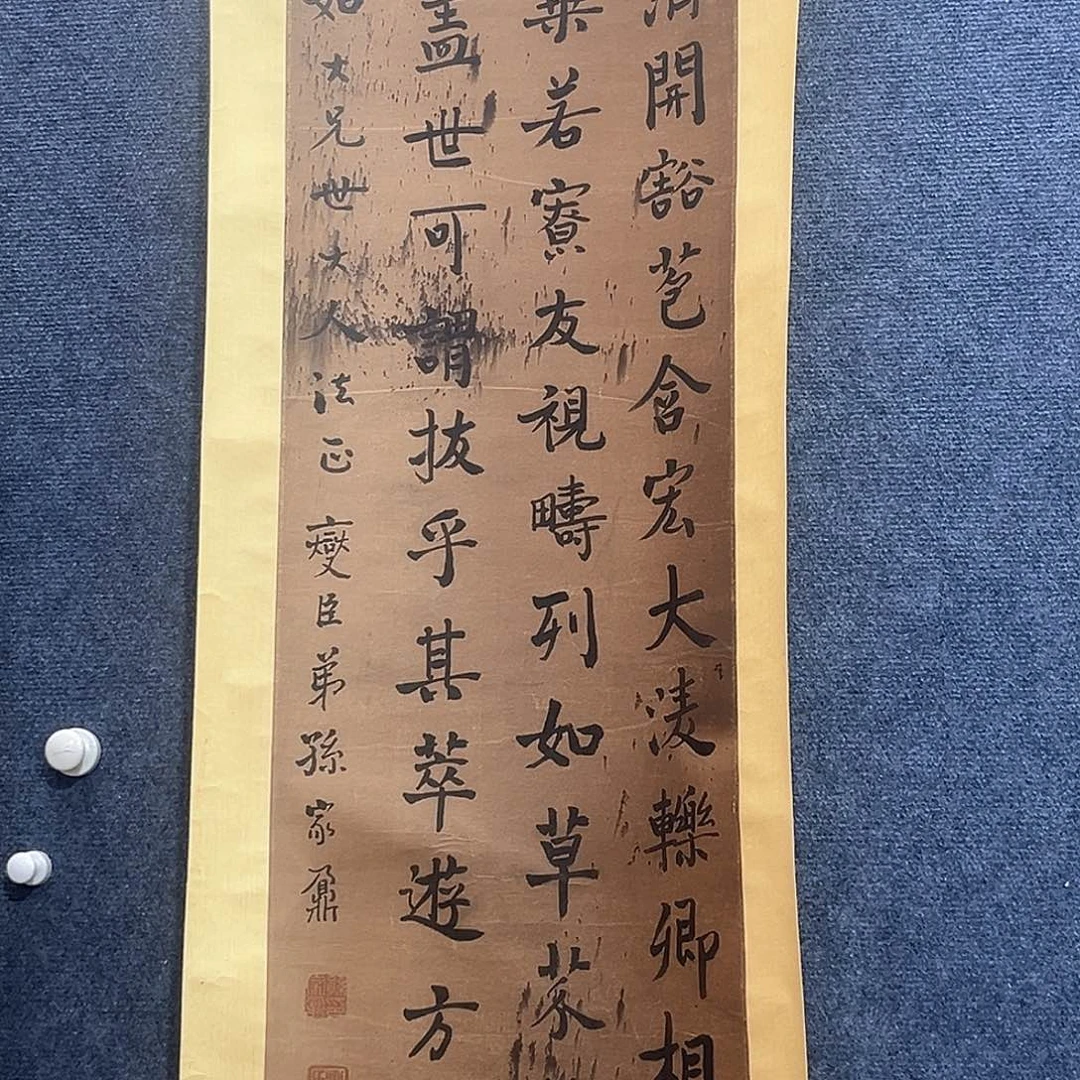 開豁苞含宏大淩轢卿相
乘若寮友視疇列如草芥
盖世可謂拔乎其萃遊方
如大兄世大人法正燮臣弟孫家鼐